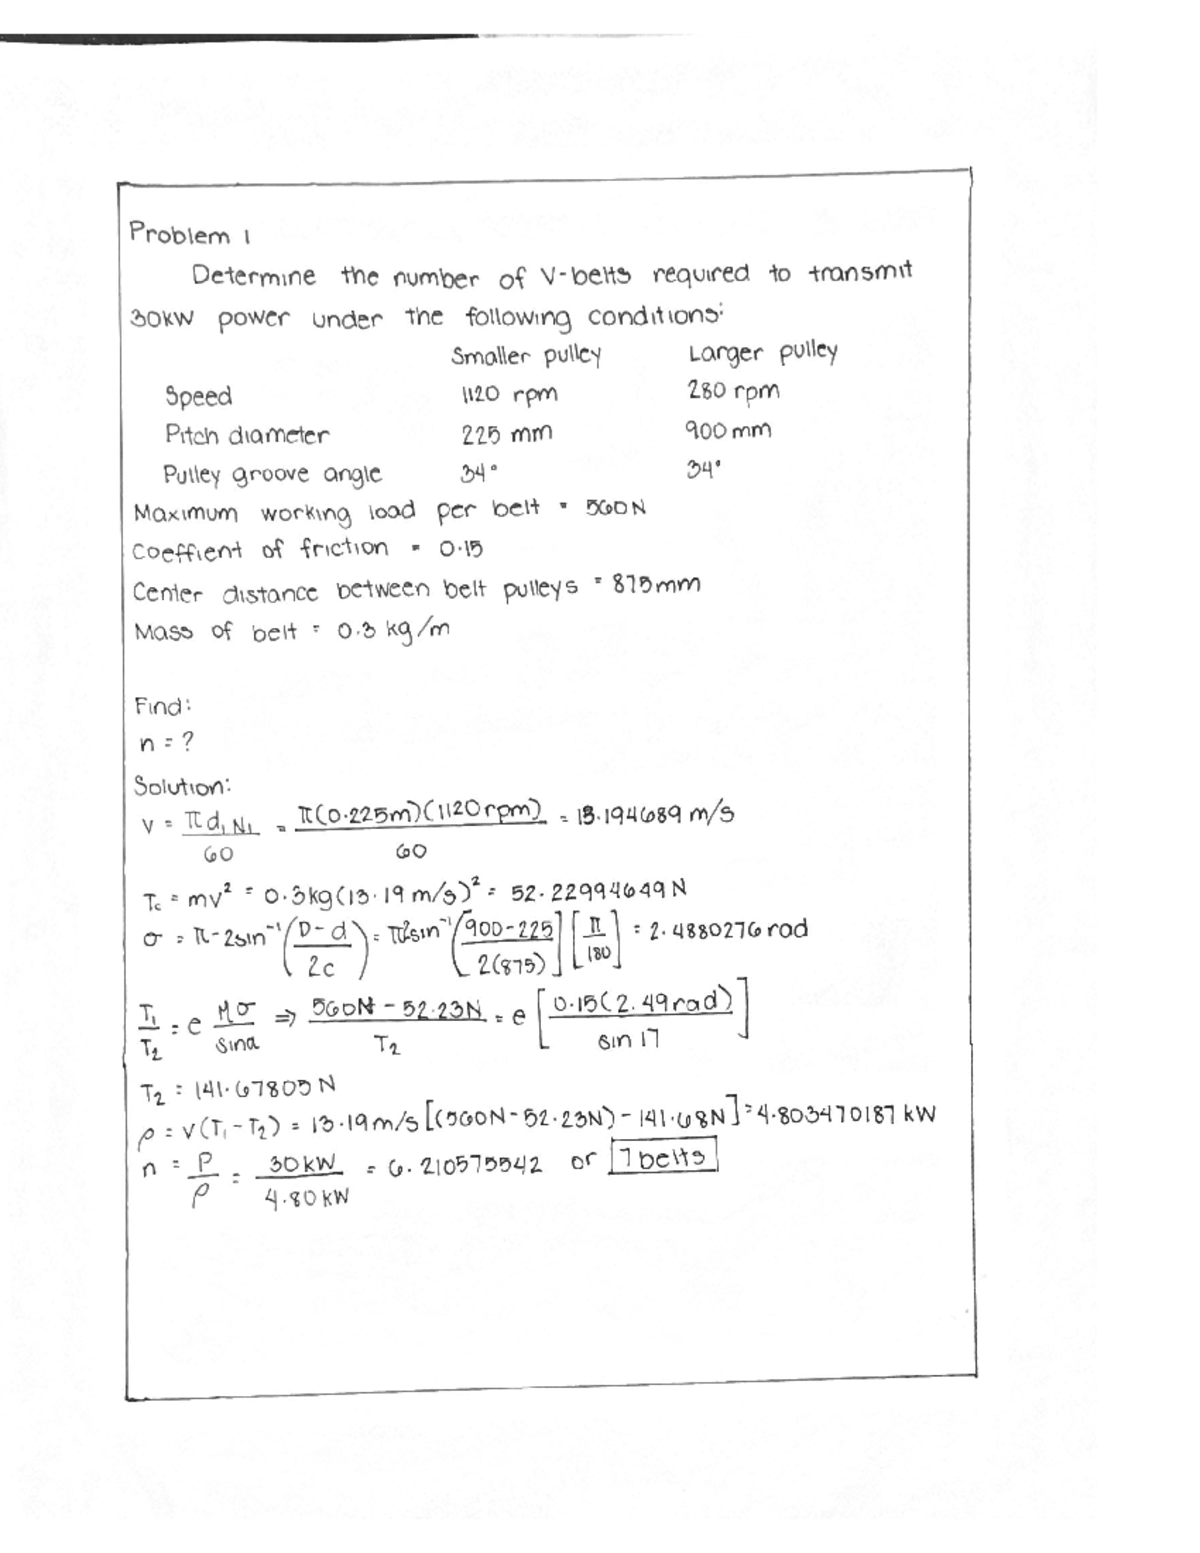 Problem 1
Determine the number of V-belts required to transmit
30kW power under the following conditions:
Smaller pulley Larger pulley
Speed 1120 rpm 280 rpm
Pitch diameter 225 mm 900 mm
Pulley groove angle 34° 34°
Maximum working load per belt = 560N
Coeffient of friction = 0.15
Center distance between belt pulleys = 875mm
Mass of belt = 0.3 kg/m
Find:
n = ?
Solution:
v = πd₁N₁/60 = π(0.225m)(1120rpm)/60 = 13.194689 m/s
Tc = mv² = 0.3kg(13.19 m/s)² = 52.22994649 N
σ = π-2sin⁻¹(D-d/2c) = π-2sin⁻¹(900-225/2(875)][π/180] = 2.4880276 rad
T₁/T₂ = e Mσ/sinα ⇒ 560N - 52.23N/T₂ = e[0.15(2.49rad)/sin 17]
T₂ = 141.67805 N
ρ = v(T₁-T₂) = 13.19m/s[(560N-52.23N)-141.68N] = 4.803470187 kW
n = P/ρ = 30kW/4.80kW = 6.210575542 or 7 belts